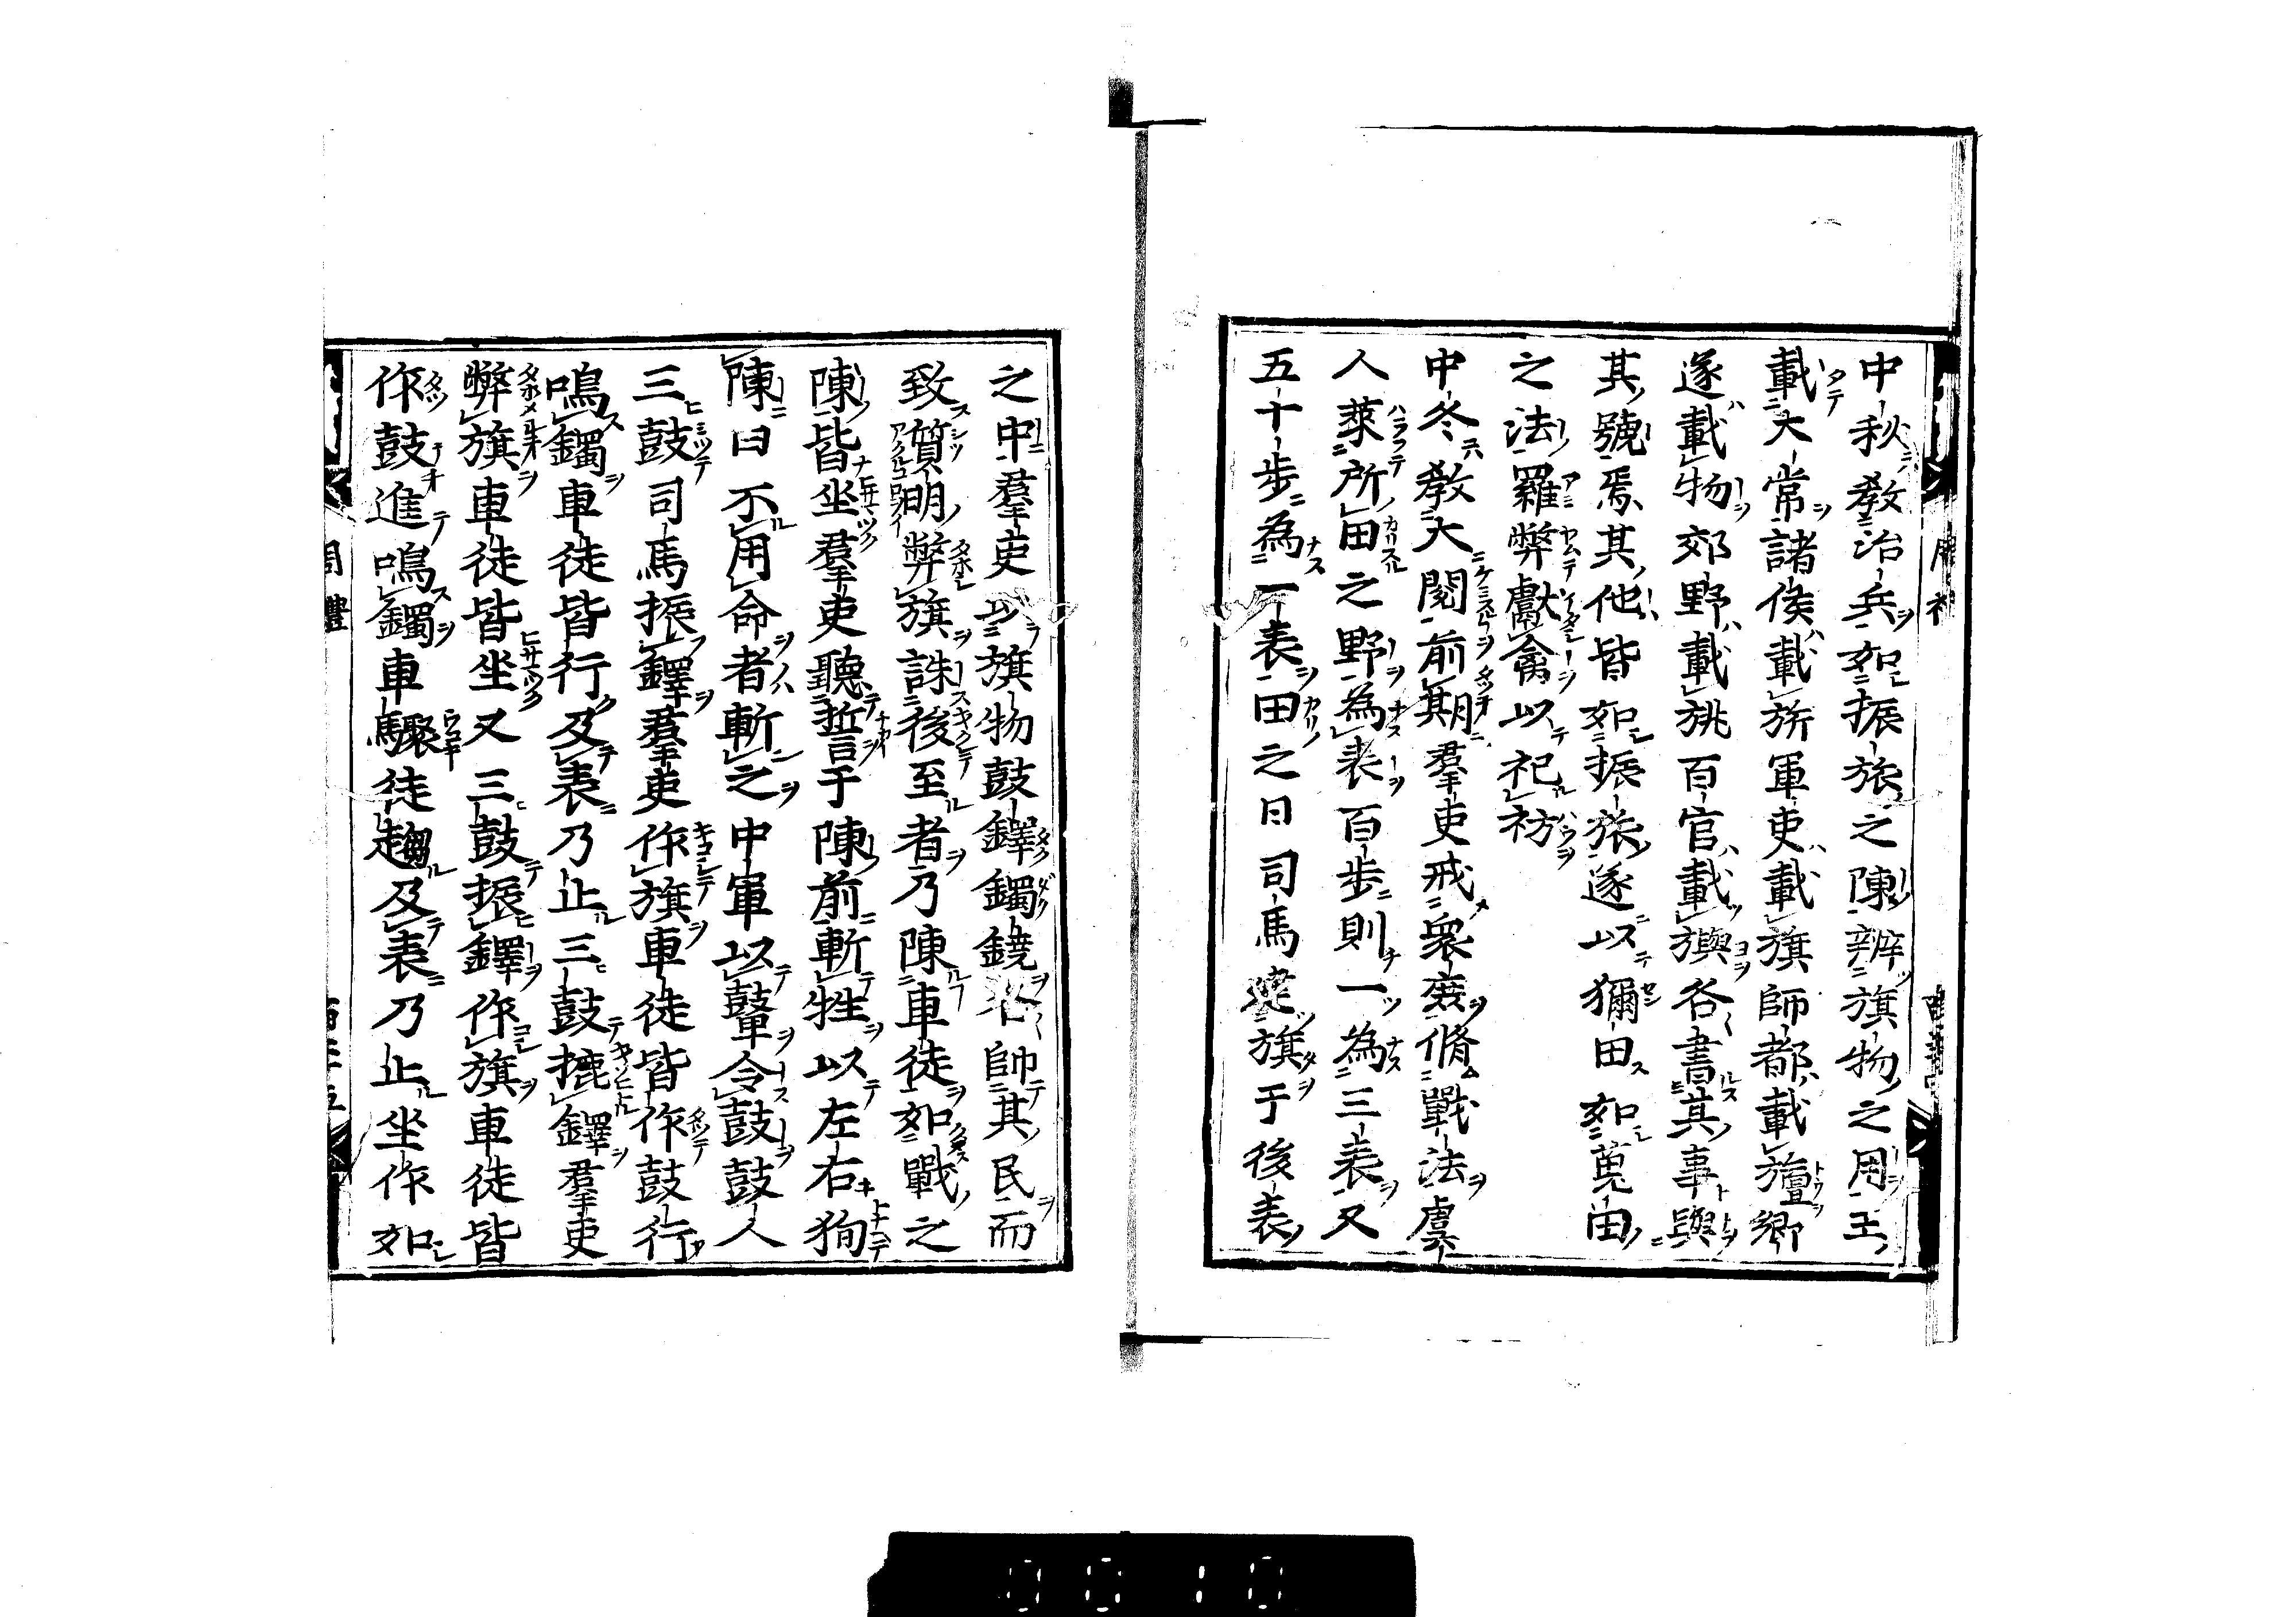 中秋教治兵如振旅之陳辨旗物之用王
載大常諸侯載旂軍吏載旗師都載旜鄉
遂載物郊野載旐百官載旟各書其事與
其號焉其他皆如振旅遂以獮田如蒐田
之法羅弊獻禽以祀祊
中冬教大閱前期羣吏戒衆庶脩戰法虞
人萊所田之野為表百步則一為三表又
五十步為一表田之日司馬建旗于後表
之中羣吏以旗物鼓鐸鐲鐃各帥其民而
致質明弊旗誅後至者乃陳車徒如戰之
陳皆坐羣吏聽誓于陳前斬牲以左右狥
陳曰不用命者斬之中軍以鼙令鼓鼓人
三鼓司馬振鐸羣吏作旗車徒皆作鼓行
鳴鐲車徒皆行及表乃止三鼓摝鐸羣吏
弊旗車徒皆坐又三鼓振鐸作旗車徒皆
作鼓進鳴鐲車驟徒趨及表乃止坐作如
周禮
0010